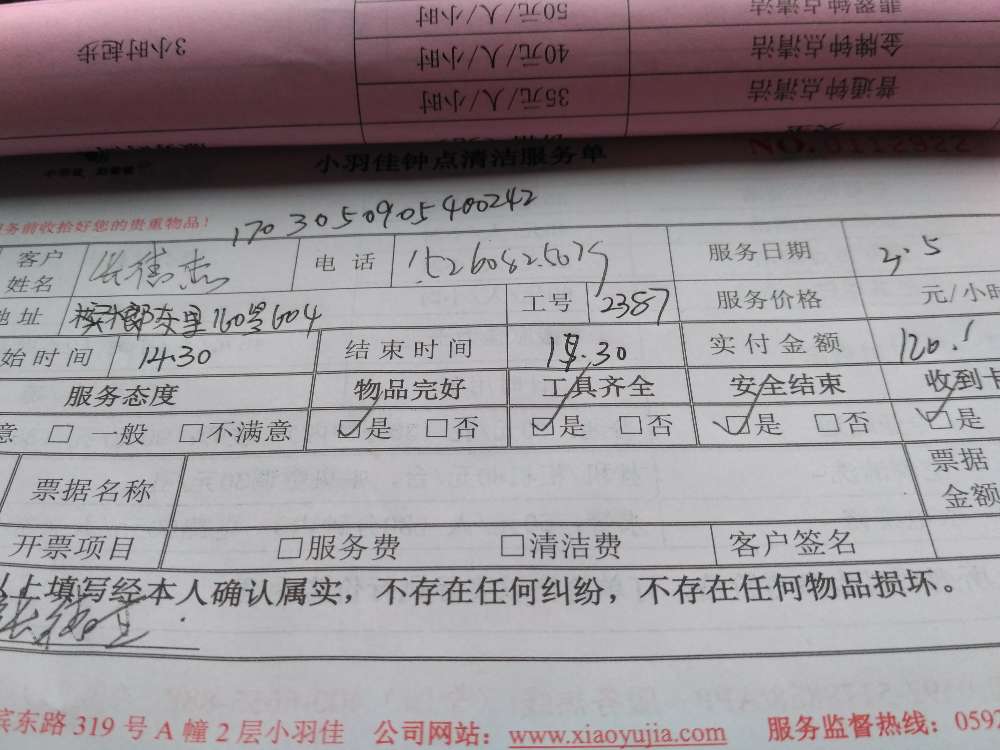 50元/人/小时 翡翠钟点清洁
3小时起步 40元/人/小时 金牌钟点清洁
35元/人/小时 普通钟点清洁
小羽佳钟点清洁服务单 NO.0112922
服务前收拾好您的贵重物品!
170305090540 0242
客户姓名 电话 服务日期 3.5
地址 160号604 工号 2387 服务价格 元/小时
始时间 14.30 结束时间 .30 实付金额 120.
服务态度 物品完好 工具齐全 安全结束 收到卡
意 □一般 □不满意 ☑是 □否 ☑是 □否 ☑是 □否 ☑是
票据名称 票据金额
开票项目 □服务费 □清洁费 客户签名
以上填写经本人确认属实，不存在任何纠纷，不存在任何物品损坏。
滨东路 319 号 A 幢 2 层小羽佳 公司网站：www.xiaoyujia.com 服务监督热线：0592